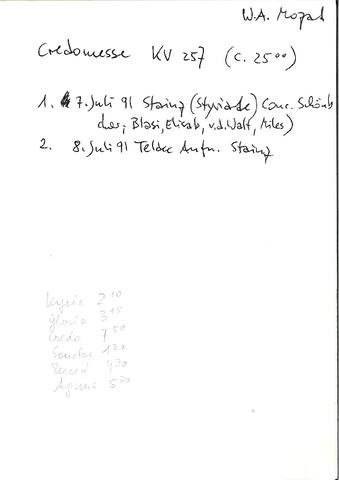 W.A. Mozart
Credomesse KV 257 (c. 25⁰⁰)
1. 7. Juli 91 Stainz (Styriarte) Conc. Schönb
cher; Blasi, Elisab, v.d.Walt, Miles)
2. 8. Juli 91 Teldec Aufn. Stainz
Kyrie 2¹⁰
Gloria 3¹⁵
Credo 7⁵⁰
Sanctus 1²⁰
Bened 4³⁰
Agnus 5²⁰